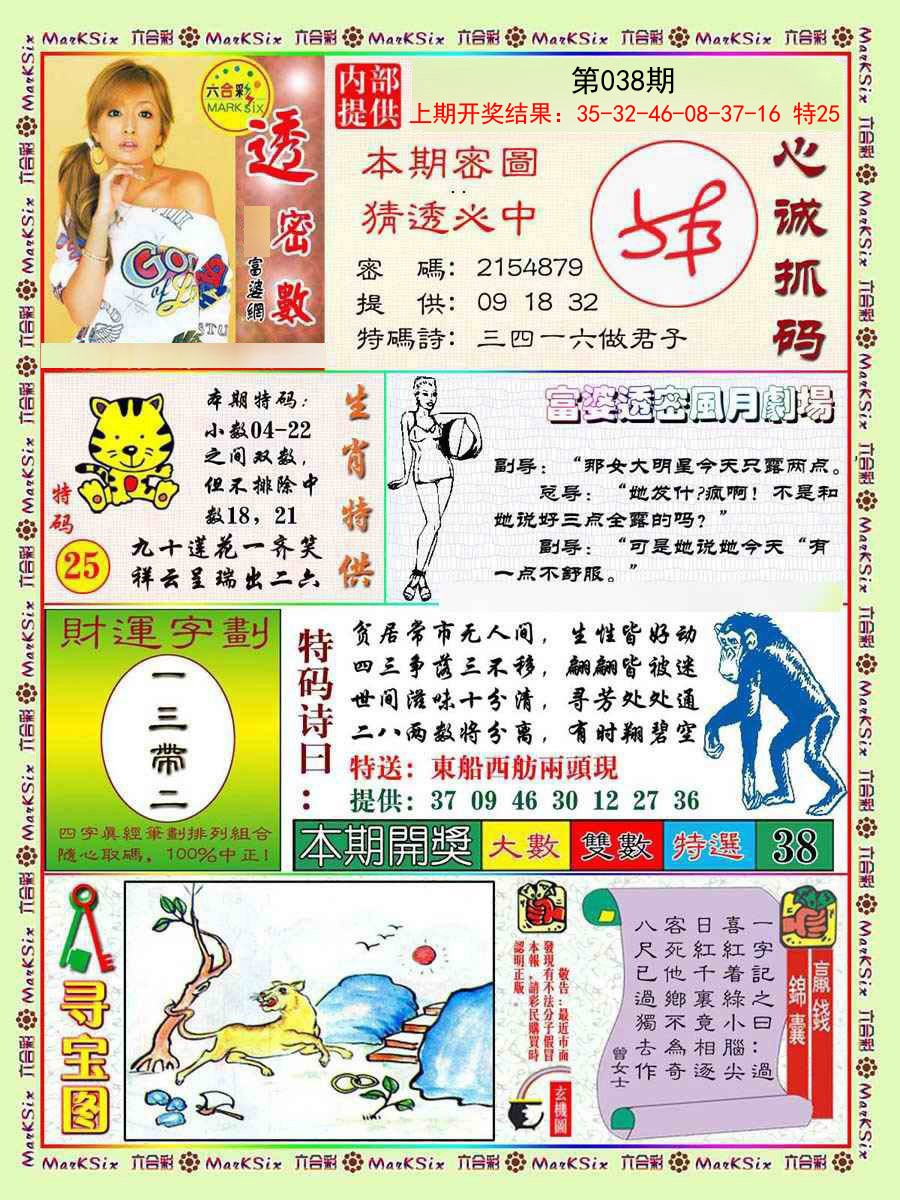 MarKSix 六合彩 MarKSix 六合彩 MarKSix 六合彩 MarKSix 六合彩 MarKSix 六合彩
六合彩
MARK SIX
透密數
富婆網
内部
提供
第038期
上期开奖结果：35-32-46-08-37-16 特25
本期密圖
猜透必中
密 碼：2154879
提 供：09 18 32
特碼詩：三四一六做君子
心诚抓码
特码
25
本期特码：
小数04-22
之间双数，
但不排除中
数18，21
九十莲花一齐笑
祥云呈瑞出二六
生肖特供
富婆透密風月劇場
副导：“那女大明星今天只露两点。”
总导：“她发什?疯啊！不是和
她说好三点全露的吗？”
副导：“可是她说她今天“有
一点不舒服。”
財運字劃
一三帶二
四字真經筆劃排列組合
隨心取碼，100%中正！
特码诗曰：
贫居常市无人间，生性皆好动
四三争落三不移，翩翩皆被迷
世间滋味十分清，寻芳处处通
二八两数将分离，有时翔碧空
特送：東船西舫兩頭現
提供：37 09 46 30 12 27 36
本期開獎 大數 雙數 特選 38
寻宝图
敬告：最近市面
發現有不法分子假冒
本報，請彩民購買時
認明正版。
玄機圖
贏錢
錦囊
一字記之曰：過
喜紅着綠小腦尖
日紅千裏竟相逐
客死他鄉不為奇
八尺已過獨去作
曾女士
MarKSix 六合彩 MarKSix 六合彩 MarKSix 六合彩 MarKSix 六合彩 MarKSix 六合彩